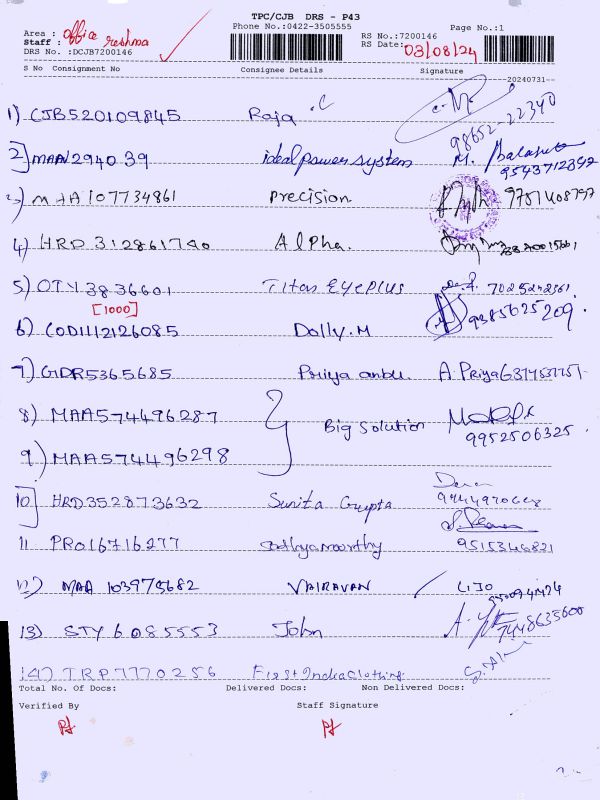 TPC/CJB DRS - P43
Phone No.:0422-3505555
Page No.:1
Area : office
Staff : reshma
DRS No :DCJB7200146
RS No.:7200146
RS Date: 03/08/24
S No Consignment No Consignee Details Signature
20240731
1) CJB520109845 Raja .C
98652-22340
2) MAA1294039 ideal power system M.
9543712342
3) MAA107734861 Precision
4) HRD 312861740 Alpha.
5) OTY 3836601 Titan Eyeplus
[1000]
6) COD1112126085 Dolly.M 9385625209.
7) GDR5365685 Priya anbu. A.Priya
8) MAA574496287 Big Solution
9952506325
9) MAA574496298
10) HRD352873632 Sunita Gupta
11 PRO16716277 Sathyamoorthy 9515346821
12) MAA 103975682 VAIRAVAN LIJO
13) STY 6085553 John 7448635600
14) TRP7770256 First India Clothing
Total No. Of Docs: Delivered Docs: Non Delivered Docs:
Verified By Staff Signature